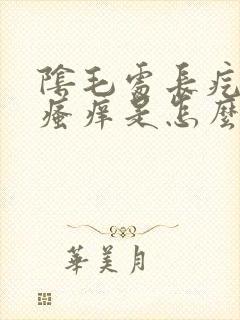 陰毛處長疙
瘙痒是怎麼
華美月